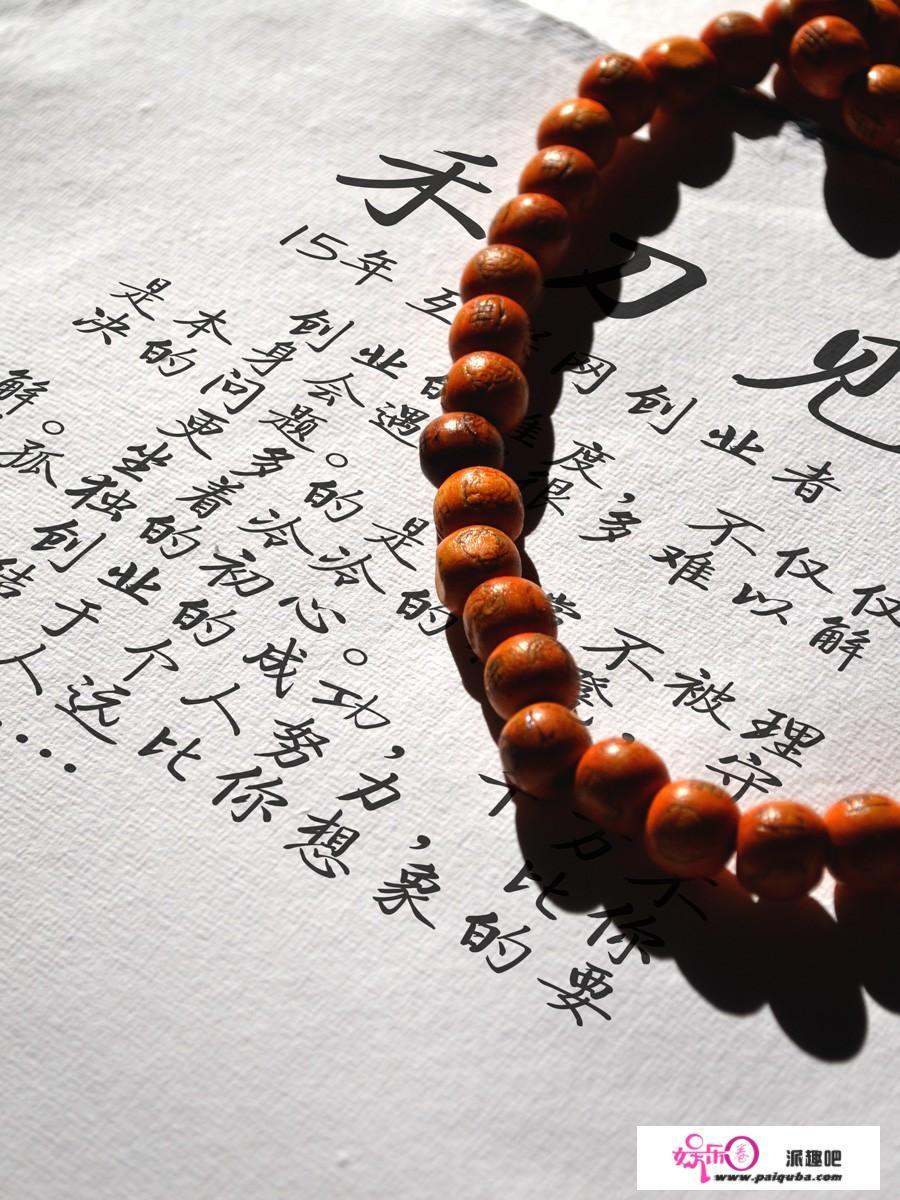 禾刀见
15年互联网创业者
创业的难度,不仅仅
是本身会遇很多难以解
决的问题。
更多的是常不被理
解。
坐着冷冷的凳,守
孤独的初心。
创业的成功,千万不
结于个人努力,比你
人远比你想象的要
...
娱乐圈 派趣吧
www.paiquba.com